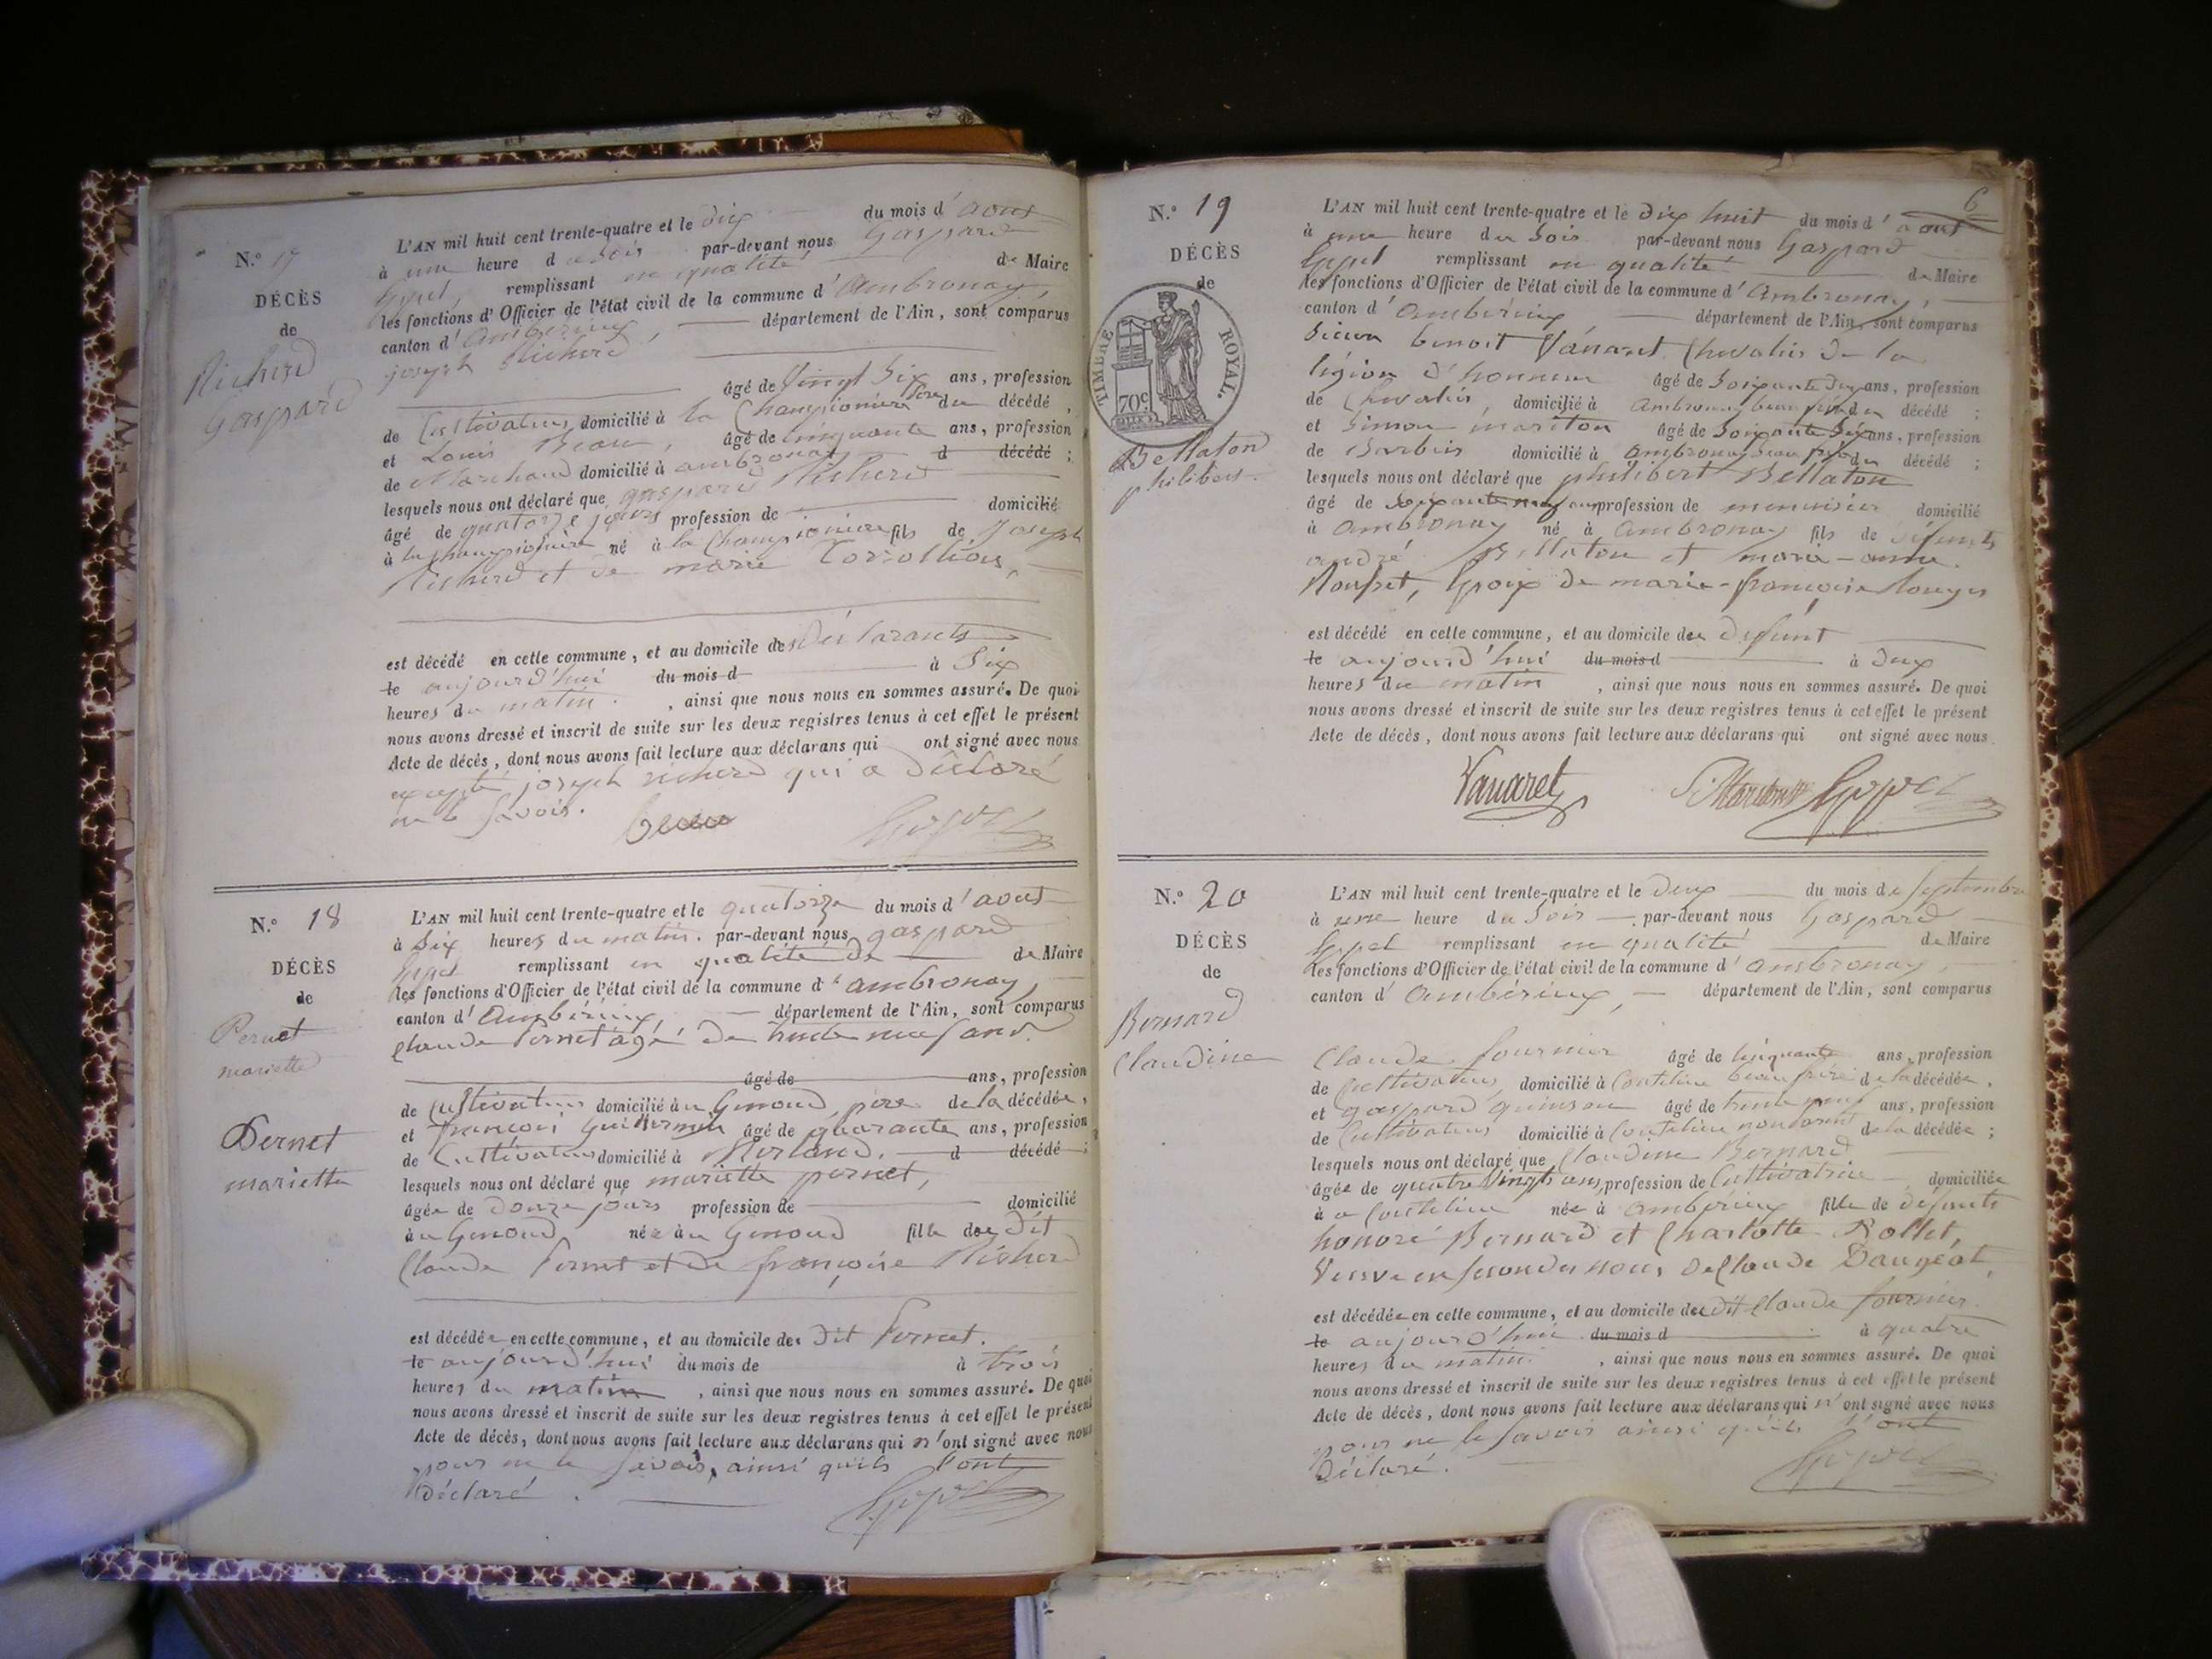 N.° 17
DÉCÈS
de
Richerd
Gaspard
L'AN mil huit cent trente-quatre et le dix du mois d'aout
à une heure du soir par-devant nous Gaspard
remplissant en qualité de Maire
les fonctions d'Officier de l'état civil de la commune d'Ambronay,
canton d'Ambérieux, département de l'Ain, sont comparus
joseph Richerd
âgé de Vingt Six ans, profession
de Cultivateur domicilié à la Championière père du décédé,
et Louis Beau, âgé de cinquante ans, profession
de Marchand domicilié à ambronay d décédé;
lesquels nous ont déclaré que gaspard Richerd
âgé de quatorze jours profession de domicilié
à la Championière né à la Championière fils de Joseph
Richerd et de marie
est décédé en cette commune, et au domicile des déclarants
le aujourd'hui du mois d à Six
heures du matin, ainsi que nous nous en sommes assuré. De quoi
nous avons dressé et inscrit de suite sur les deux registres tenus à cet effet le présent
Acte de décès, dont nous avons fait lecture aux déclarans qui ont signé avec nous
excepté joseph richerd qui a déclaré
ne le savoir.
Beau
N.° 18
DÉCÈS
de
Pernet
mariette
Pernet
mariette
L'AN mil huit cent trente-quatre et le quatorze du mois d'aout
à Six heures du matin. par-devant nous gaspard
remplissant en qualité de de Maire
les fonctions d'Officier de l'état civil de la commune d'ambronay,
canton d'Ambérieux, département de l'Ain, sont comparus
Claude Pernet âgé de trente neuf ans
âgé de ans, profession
de Cultivateur domicilié au Genoud père de la décédée,
et françois Guillermin âgé de quarante ans, profession
de Cultivateur domicilié à Merland, d décédé;
lesquels nous ont déclaré que mariette pernet,
âgée de douze jours profession de domicilié
au Genoud née au Genoud fille du dit
Claude Pernet et de françoise Richerd
est décédée en cette commune, et au domicile de dit Pernet.
le aujourd'hui du mois de à trois
heures du matin, ainsi que nous nous en sommes assuré. De quoi
nous avons dressé et inscrit de suite sur les deux registres tenus à cet effet le présent
Acte de décès, dont nous avons fait lecture aux déclarans qui n'ont signé avec nous
pour ne le savoir, ainsi qu'ils l'ont
déclaré.
6
N.° 19
DÉCÈS
de
TIMBRE ROYAL.
70c
Bellaton
philibert
L'AN mil huit cent trente-quatre et le dix huit du mois d'aout
à une heure du soir par-devant nous Gaspard
remplissant en qualité de Maire
les fonctions d'Officier de l'état civil de la commune d'Ambronay,
canton d'Ambérieux département de l'Ain, sont comparus
Sieur benoit Vanaret Chevalier de la
légion d'honneur âgé de Soixante dix ans, profession
de Chevalier, domicilié à Ambronay beau frère du décédé;
et Simon mariton âgé de Soixante Six ans, profession
de Barbier domicilié à Ambronay beau frère du décédé;
lesquels nous ont déclaré que philibert Bellaton
âgé de Soixante neuf ans profession de menuisier domicilié
à Ambronay né à Ambronay fils de défunts
andré Bellaton et marie-anne
Epoux de marie-françoise
est décédé en cette commune, et au domicile du défunt
le aujourd'hui du mois d à deux
heures du matin, ainsi que nous nous en sommes assuré. De quoi
nous avons dressé et inscrit de suite sur les deux registres tenus à cet effet le présent
Acte de décès, dont nous avons fait lecture aux déclarans qui ont signé avec nous
Vanaret
N.° 20
DÉCÈS
de
Bernard
Claudine
L'AN mil huit cent trente-quatre et le deux du mois de Septembre
à une heure du soir par-devant nous Gaspard
remplissant en qualité de Maire
les fonctions d'Officier de l'état civil de la commune d'ambronay,
canton d'Ambérieux, département de l'Ain, sont comparus
Claude fournier âgé de cinquante ans, profession
de Cultivateur, domicilié à Coutelieu beau frère de la décédée,
et gaspard quinson âgé de trente neuf ans, profession
de Cultivateur domicilié à Coutelieu non parent de la décédée;
lesquels nous ont déclaré que Claudine Bernard
âgée de quatre Vingts ans, profession de Cultivatrice domiciliée
à Coutelieu née à Ambérieux fille de défunts
honoré Bernard et Charlotte Rollet,
Veuve en secondes noces de Claude Daugeat
est décédée en cette commune, et au domicile du dit Claude fournier.
le aujourd'hui du mois d à quatre
heures du matin, ainsi que nous nous en sommes assuré. De quoi
nous avons dressé et inscrit de suite sur les deux registres tenus à cet effet le présent
Acte de décès, dont nous avons fait lecture aux déclarans qui n'ont signé avec nous
pour ne le savoir ainsi qu'ils l'ont
Déclaré.